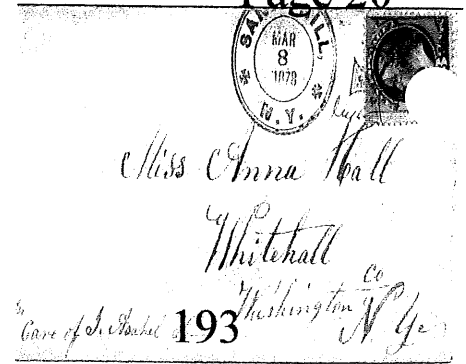 Page 20
SAN HILL,
MAR
8
1878
N. Y.
Miss Anna Hall
Whitehall
Washington Co
N Y.
Care of
193